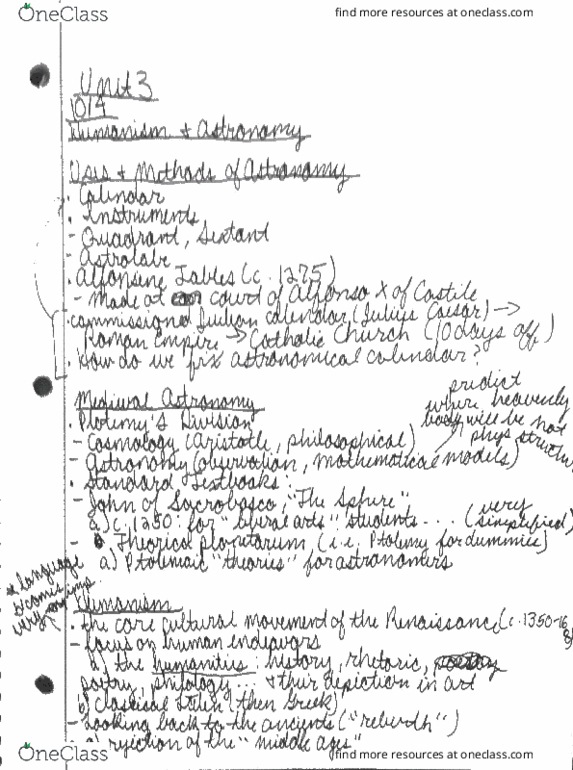 OneClass
find more resources at oneclass.com
Unit 3
10/4
Humanism + Astronomy
Uses + Methods of Astronomy
· Calendar
· Instruments
- Quadrant, Sextant
- Astrolabe
· Alfonsine Tables (c. 1275)
- made at court of Alfonso X of Castile
· commissioned Julian calendar (Julius Caesar) →
Roman Empire → Catholic Church (10 days off)
· How do we fix astronomical calendar?
Medieval Astronomy
· Ptolemy's Division
- Cosmology (Aristotle, philosophical)
- Astronomy (observation, mathematical models)
predict
where heavenly
body will be not
phys structure
· Standard Textbooks:
- John of Sacrobosco, "The Sphere"
a) c. 1250: for "liberal arts" students... (very
simplified)
- Theorica planetarum (i.e. Ptolemy for dummies)
a) Ptolemaic "theories" for astronomers
* language
becomes
very imp.
Humanism
· the core cultural movement of the Renaissance (c. 1350-16
- focus on human endeavors
a) the humanities: history, rhetoric,
poetry, philology... + their depiction in art
b) classical Latin (then Greek)
- Looking back to the ancients ("rebirth")
a) rejection of the "middle ages"
OneClass
find more resources at oneclass.com